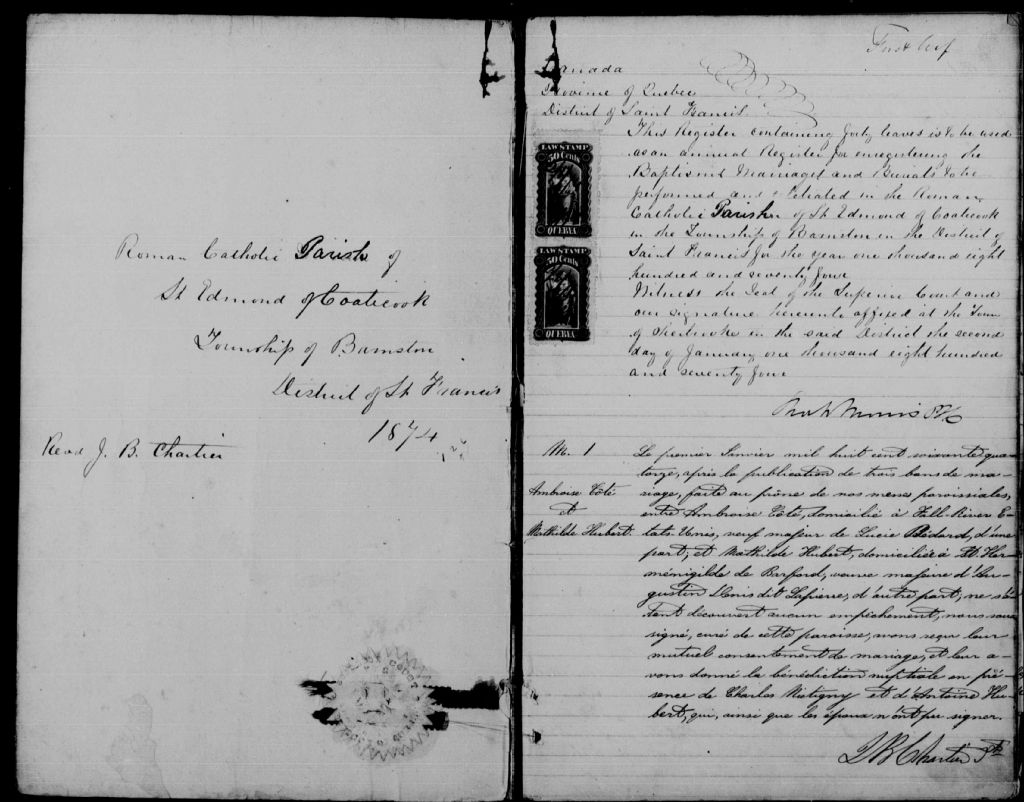 Roman Catholic Parish of
St Edmond of Coaticook
Township of Barnston
District of St Francis
1874
Revd J. B. Chartier
Canada
Province of Quebec
District of Saint Francis
This Register containing forty leaves is to be used
as an annual Register for enregistering the
Baptisms Marriages and Burials to be
performed and celebrated in the Roman
Catholic Parish of St Edmond of Coaticook
in the Township of Barnston in the District of
Saint Francis for the year one thousand eight
hundred and seventy four
Witness the Seal of the Superior Court and
our signature hereunto affixed at the Town
of Sherbrooke in the said District the second
day of January one thousand eight hundred
and seventy four
LAW STAMP
50 Cents
QUEBEC
LAW STAMP
50 Cents
QUEBEC
M. 1
Ambroise Côté
et
Mathilde Hubert.
Le premier Janvier mil huit cent soixante qua-
torze, après la publication de trois bans de ma-
riage, faite au prône de nos messes paroissiales,
entre Ambroise Côté, domicilié à Fall-River E-
tats-Unis, veuf majeur de Lucie Bédard, d'une
part; et Mathilde Hubert, domiciliée à St. Her-
ménigilde de Barford, veuve majeure d'Au-
gustin Denis dit Lapierre, d'autre part; ne s'é-
tant découvert aucun empêchement, nous sous
signé, curé de cette paroisse, avons reçu leur
mutuel consentement de mariage, et leur a-
vons donné la bénédiction nuptiale en pré-
sence de Charles Martigny et d'Antoine Hu-
bert, qui, ainsi que les époux n'ont pu signer.
J B Chartier Ptre